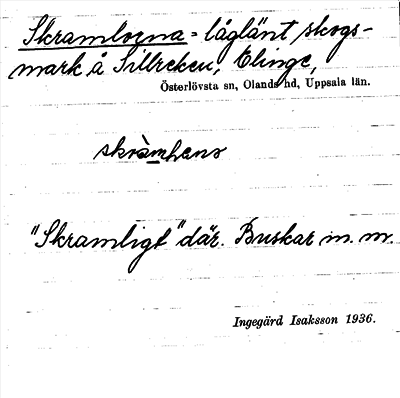 Skramlogna = låglänt skogs-
mark å Sillreken, Elinge,
Österlövsta sn, Olands hd, Uppsala län.
"Skramligt" där. Buskar m. m.
Ingegärd Isaksson 1936.